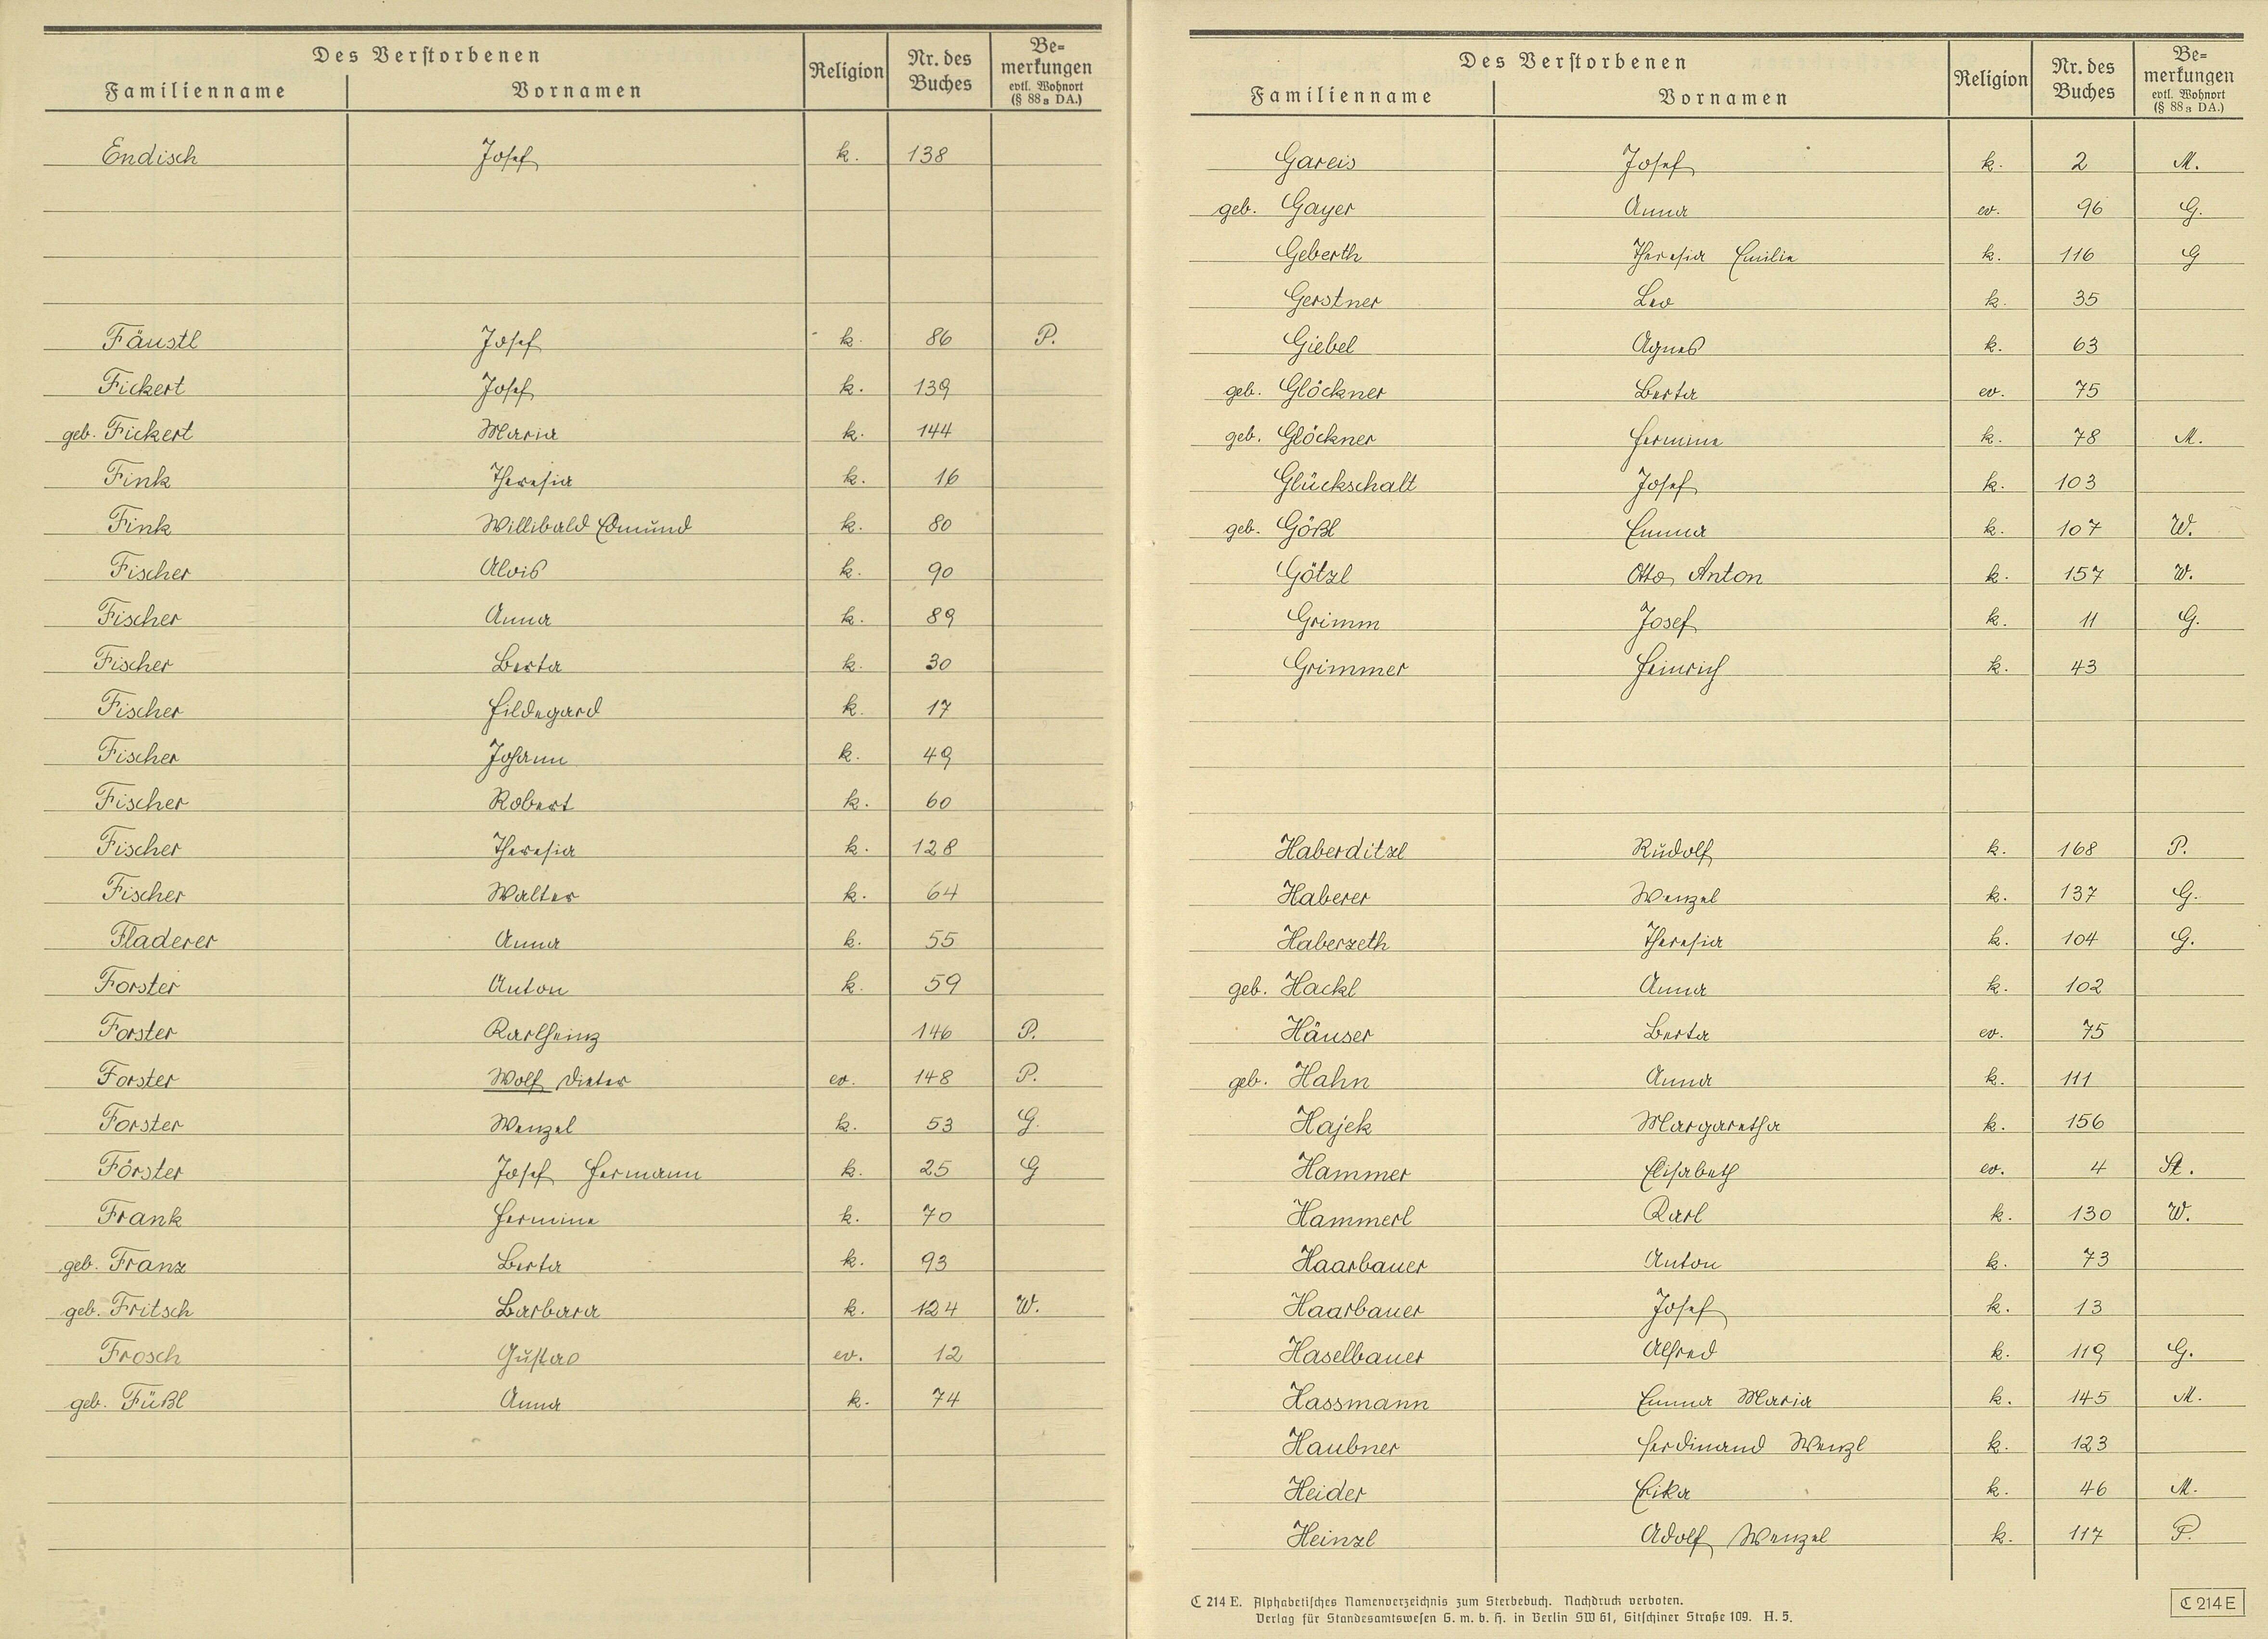 Des Verstorbenen
Familienname Vornamen Religion Nr. des Buches Be-
merkungen
evtl. Wohnort
(§ 88a DA.)
Endisch Josef k. 138
Fäustl Josef k. 86 P.
Fickert Josef k. 139
geb. Fickert Maria k. 144
Fink Theresia k. 16
Fink Willibald Edmund k. 80
Fischer Alois k. 90
Fischer Anna k. 89
Fischer Berta k. 30
Fischer Hildegard k. 17
Fischer Johann k. 49
Fischer Robert k. 60
Fischer Theresia k. 128
Fischer Walter k. 64
Fladerer Anna k. 55
Forster Anton k. 59
Forster Karlheinz 146 P.
Forster Wolf Dieter ev. 148 P.
Forster Wenzel k. 53 G.
Förster Josef Hermann k. 25 G
Frank Hermine k. 70
geb. Franz Berta k. 93
geb. Fritsch Barbara k. 124 W.
Frosch Gustav ev. 12
geb. Füßl Anna k. 74
Des Verstorbenen
Familienname Vornamen Religion Nr. des Buches Be-
merkungen
evtl. Wohnort
(§ 88a DA.)
Gareis Josef k. 2 M.
geb. Gayer Anna ev. 96 G.
Geberth Theresia Emilie k. 116 G
Gerstner Leo k. 35
Giebel Agnes k. 63
geb. Glöckner Berta ev. 75
geb. Glöckner Hermine k. 78 M.
Glückschalt Josef k. 103
geb. Gößl Emma k. 107 W.
Götzl Otto Anton k. 157 W.
Grimm Josef k. 11 G.
Grimmer Heinrich k. 43
Haberditzl Rudolf k. 168 P.
Haberer Wenzel k. 137 G.
Haberzeth Theresia k. 104 G.
geb. Hackl Anna k. 102
Häuser Berta ev. 75
geb. Hahn Anna k. 111
Hajek Margaretha k. 156
Hammer Elisabeth ev. 4 St.
Hammerl Karl k. 130 W.
Haarbauer Anton k. 73
Haarbauer Josef k. 13
Haselbauer Alfred k. 119 G.
Hassmann Emma Maria k. 145 M.
Haubner Ferdinand Wenzl k. 123
Heider Erika k. 46 M.
Heinzl Adolf Wenzel k. 117 P.
C 214 E. Alphabetisches Namenverzeichnis zum Sterbebuch. Nachdruck verboten.
Verlag für Standesamtswesen G. m. b. H. in Berlin SW 61, Gitschiner Straße 109. H. 5.
C 214 E